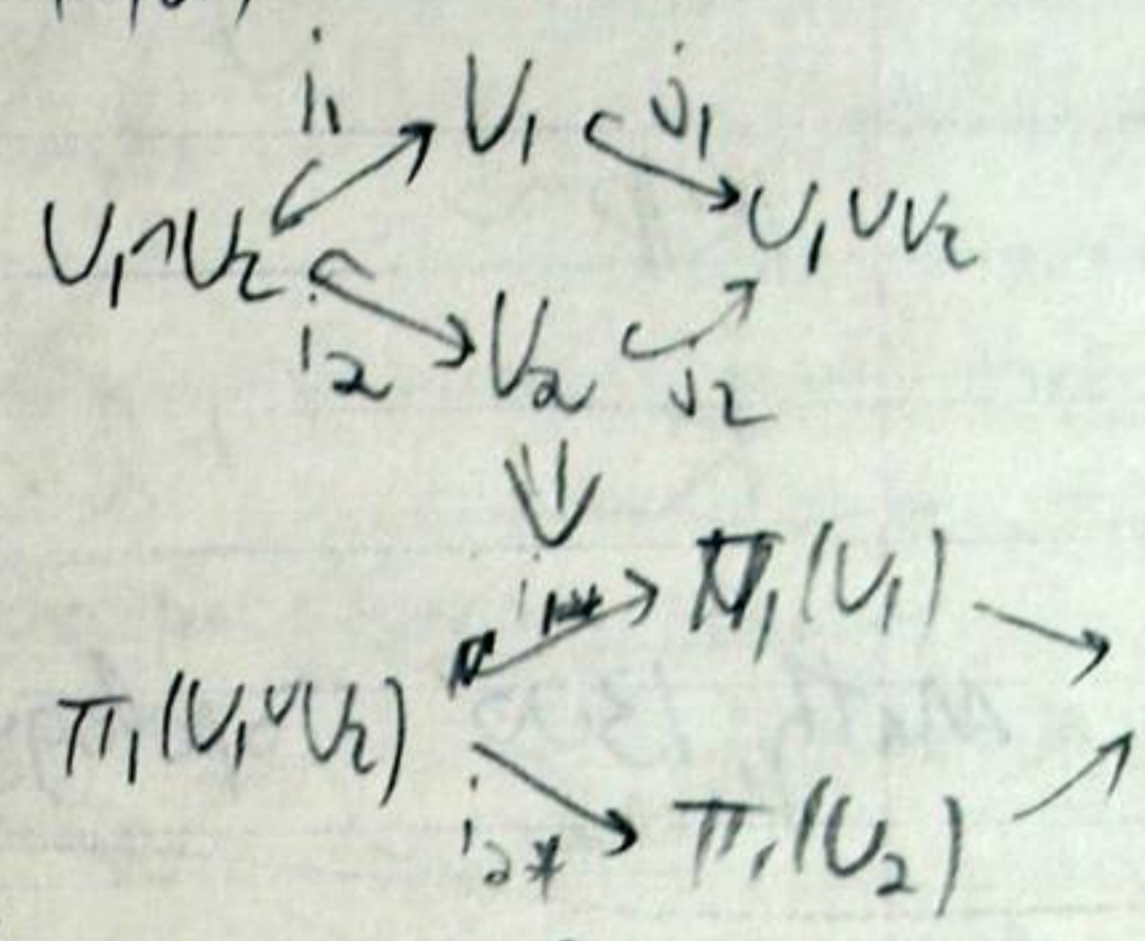 i₁ U₁ j₁
U₁∩U₂ U₁∪U₂
i₂ U₂ j₂
⇓
i₁* π₁(U₁)
π₁(U₁∪U₂)
i₂* π₁(U₂)